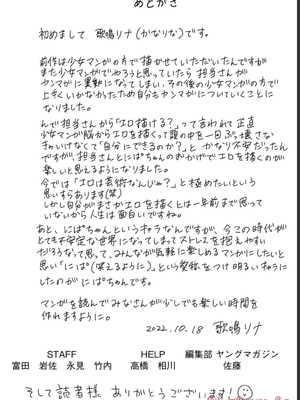 あとがき
初めまして 歌鳴リナ(かなりな)です。
前作は少女マンガの方で描かせていただいたんですが
また少女マンガでやろうと思っていたら担当さんが
ヤンマガに異動になってしまい、その後の少女マンガの方で
上手くいかなかったため自分もヤンマガについていくことに
なりました。
んで担当さんから「エロ描ける?」って言われて正直
少女マンガ脳からエロを描くって頭の中を一回ぶっ壊さな
きゃいけなくて「自分にできるのか?」とかなり不安だったん
ですが、担当さんとにぱちゃんのおかげでエロを描くのが
楽しいと思えるようになりました。
今では「エロは芸術なんじゃ?」と極めたいという
思いすらあります(笑)
しかし自分がまさかエロを描くとは一年前まで思って
いないから人生は面白いですね。
あと、にぱちゃんというキャラなんですが、今この時代が
とても不安定な世界になってしまってストレスを抱えやすい
だろうなって思って、みんなが気軽に楽しめるマンガにしたいと
思い「にぱ(笑えるように)」という愛称をつけ明るいキャラに
したのがにぱちゃんです。
マンガを読んでみなさんが少しでも楽しい時間を
作れますように。
2022.10.18 歌鳴リナ
STAFF HELP 編集部 ヤングマガジン
富田 岩佐 永見 竹内 高橋 相川 佐藤
そして読者様 ありがとうございます!